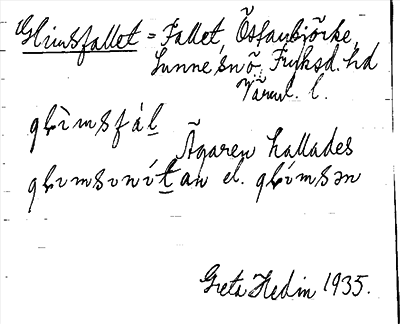 Glimsfallet = Fallet, Östanbjörke,
Sunne sn ö, Fryksd. hd
Värml. l.
gḷìmsfáḷ
Ägaren kallades
gḷımsınítan el. gḷímsən
Greta Hedin 1935.